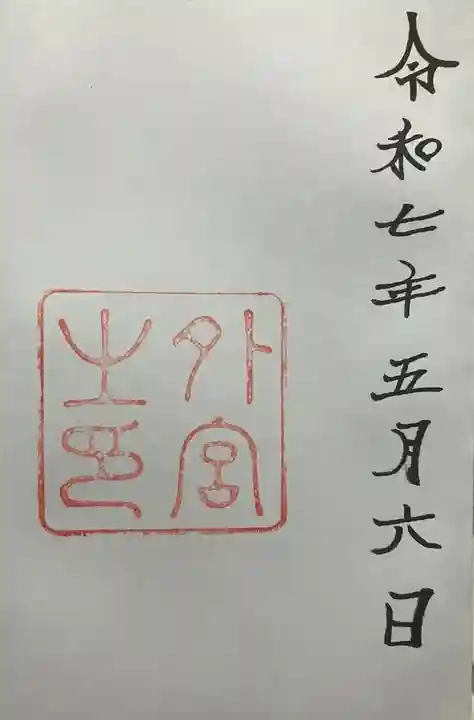 令和七年五月六日
外宮
之印